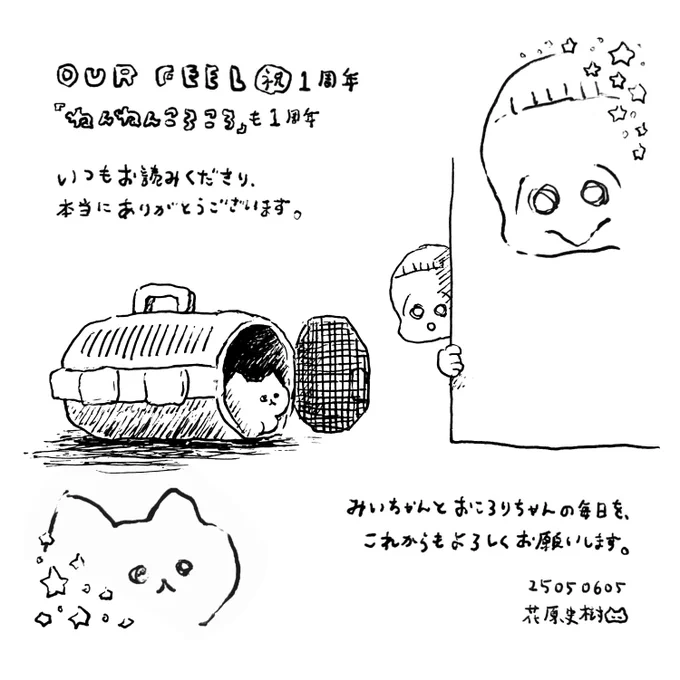 OUR FEEL ㊗1周年
『ねんねんころころ』も1周年
いつもお読みくださり、
本当にありがとうございます。
みいちゃんとおころりちゃんの毎日を、
これからもよろしくお願いします。
25050605
花原史樹